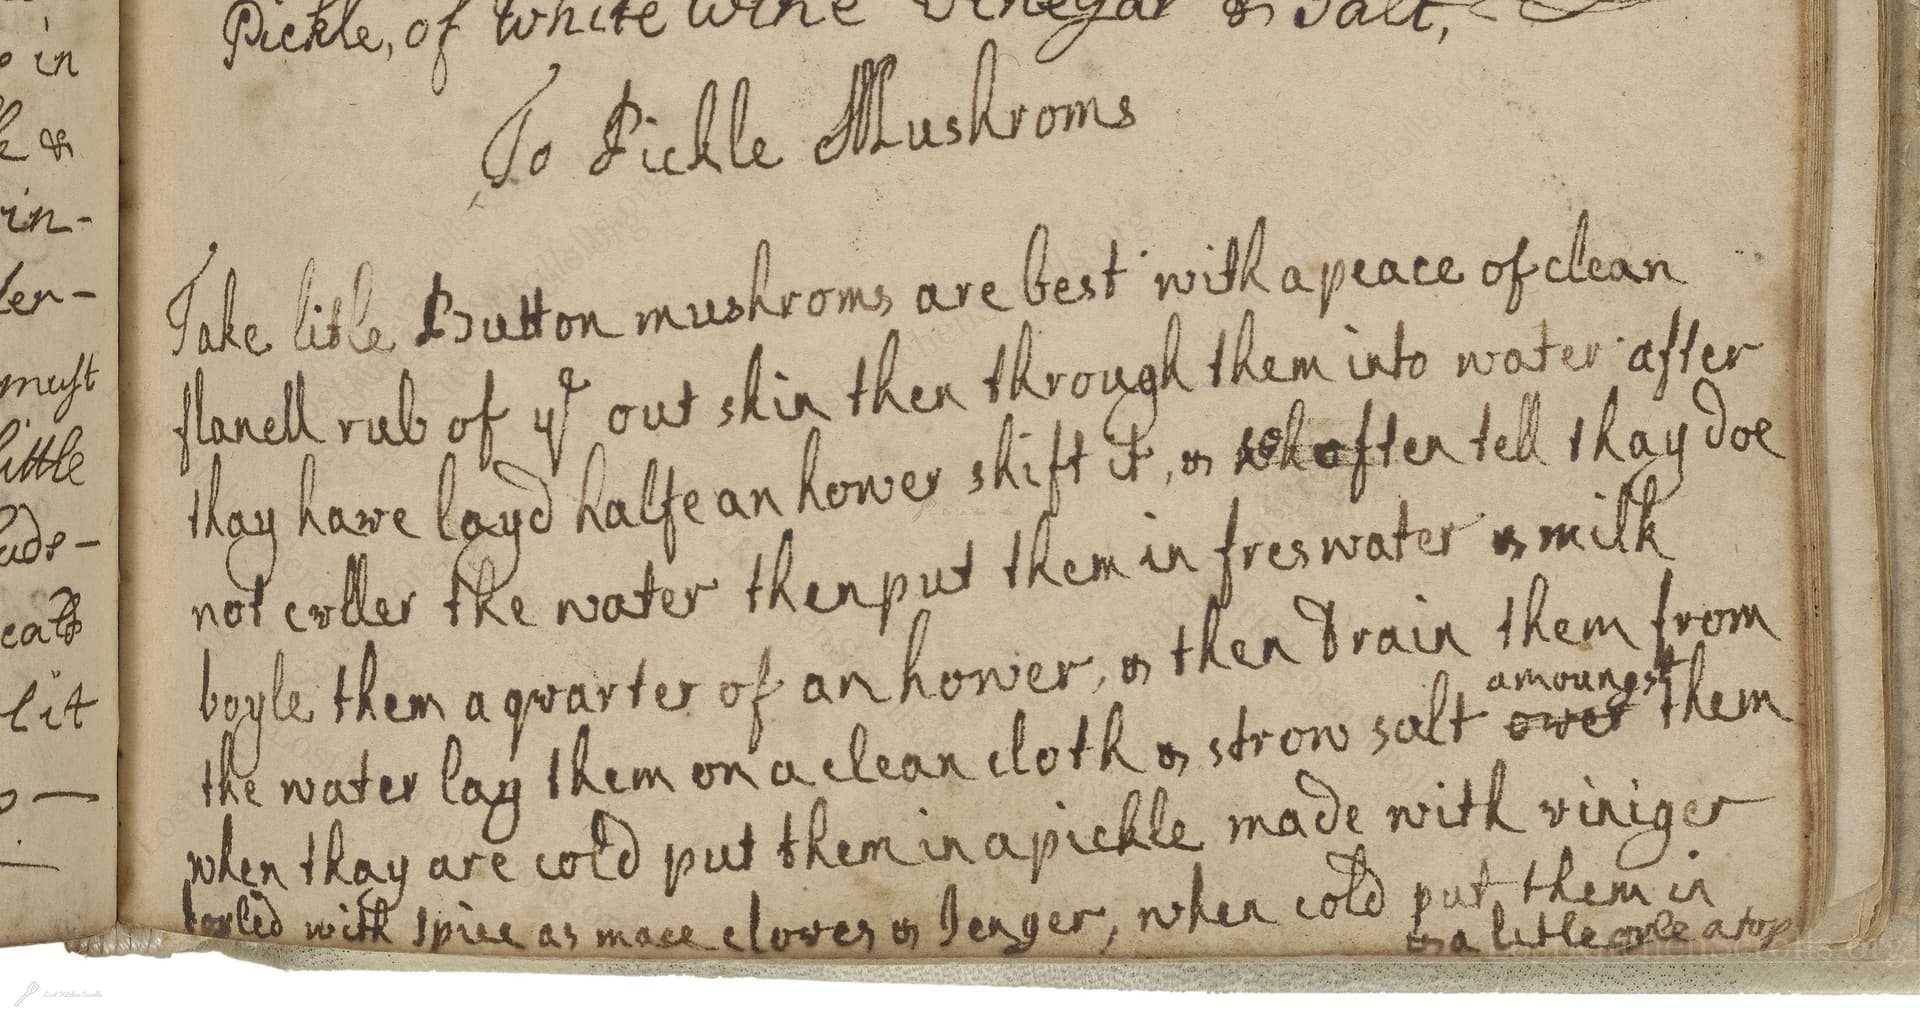 Pickle, of White Wine Vinegar & Salt,
To Pickle Mushroms
Take litle Button mushroms are best with a peace of clean
flanell rub of ye out skin then through them into water after
thay have layd halfe an hower shift it, & often tell thay doe
not culler the water then put them in fres water & milk
boyle them a quarter of an hower, & then Drain them from
the water lay them on a clean cloth & strow salt over amoungst them
when thay are cold put them in a pickle made with viniger
boyled with spice as mace cloves & Jenger, when cold put them in
& a little oyle a top
o in
k &
rin-
ler-
must
little
uds-
eat
lit
Lost Kitchen Scrolls